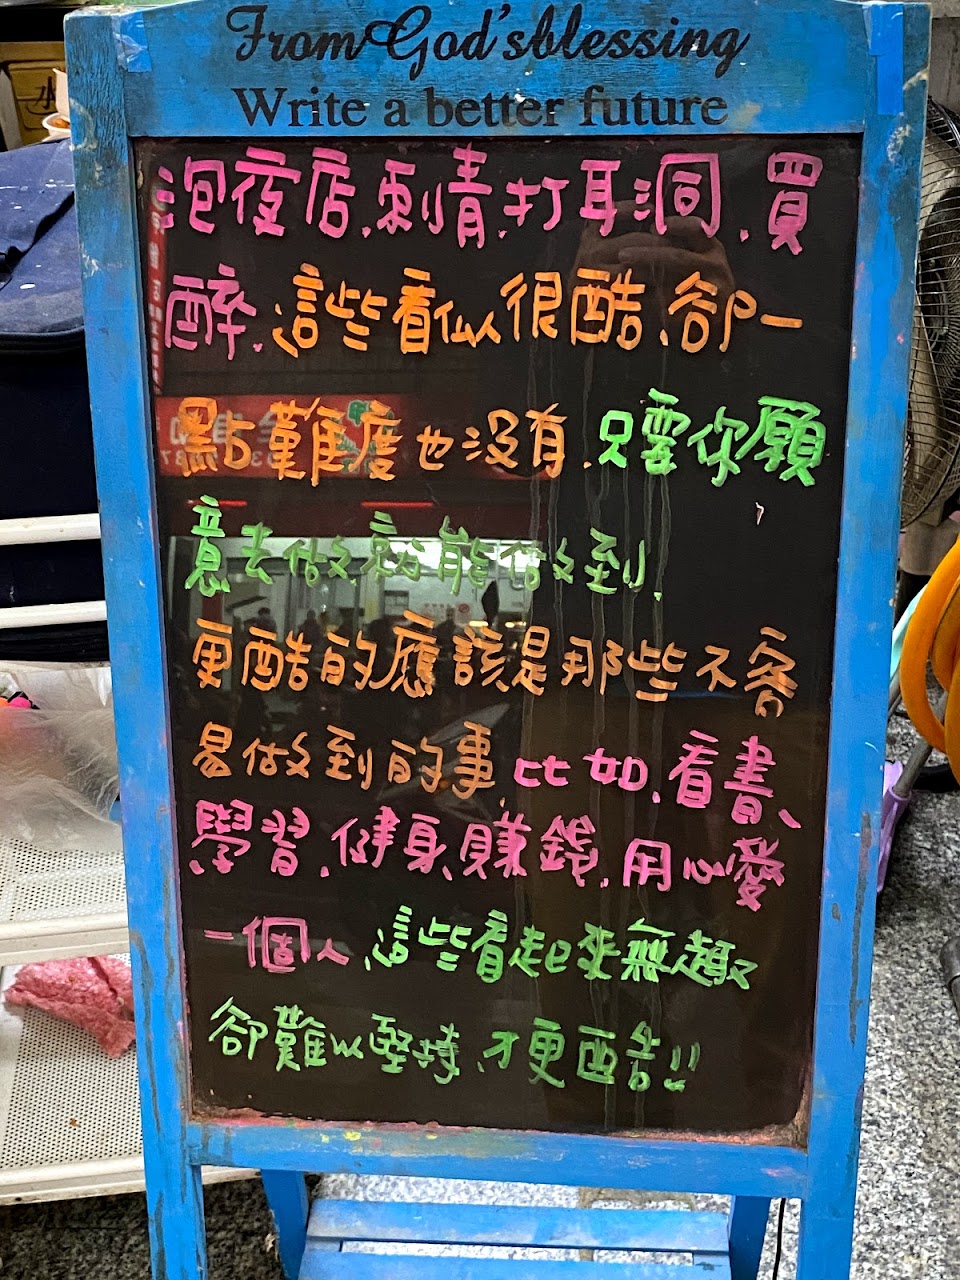 From God'sblessing
Write a better future
泡夜店.刺青.打耳洞.買
醉.這些看似很酷.卻一
點難度也沒有.只要你願
意去做就能做到.
更酷的應該是那些不容
易做到的事.比如.看書、
學習.健身.賺錢.用心愛
一個人.這些看起來無趣
卻難以堅持.才更酷!!
水